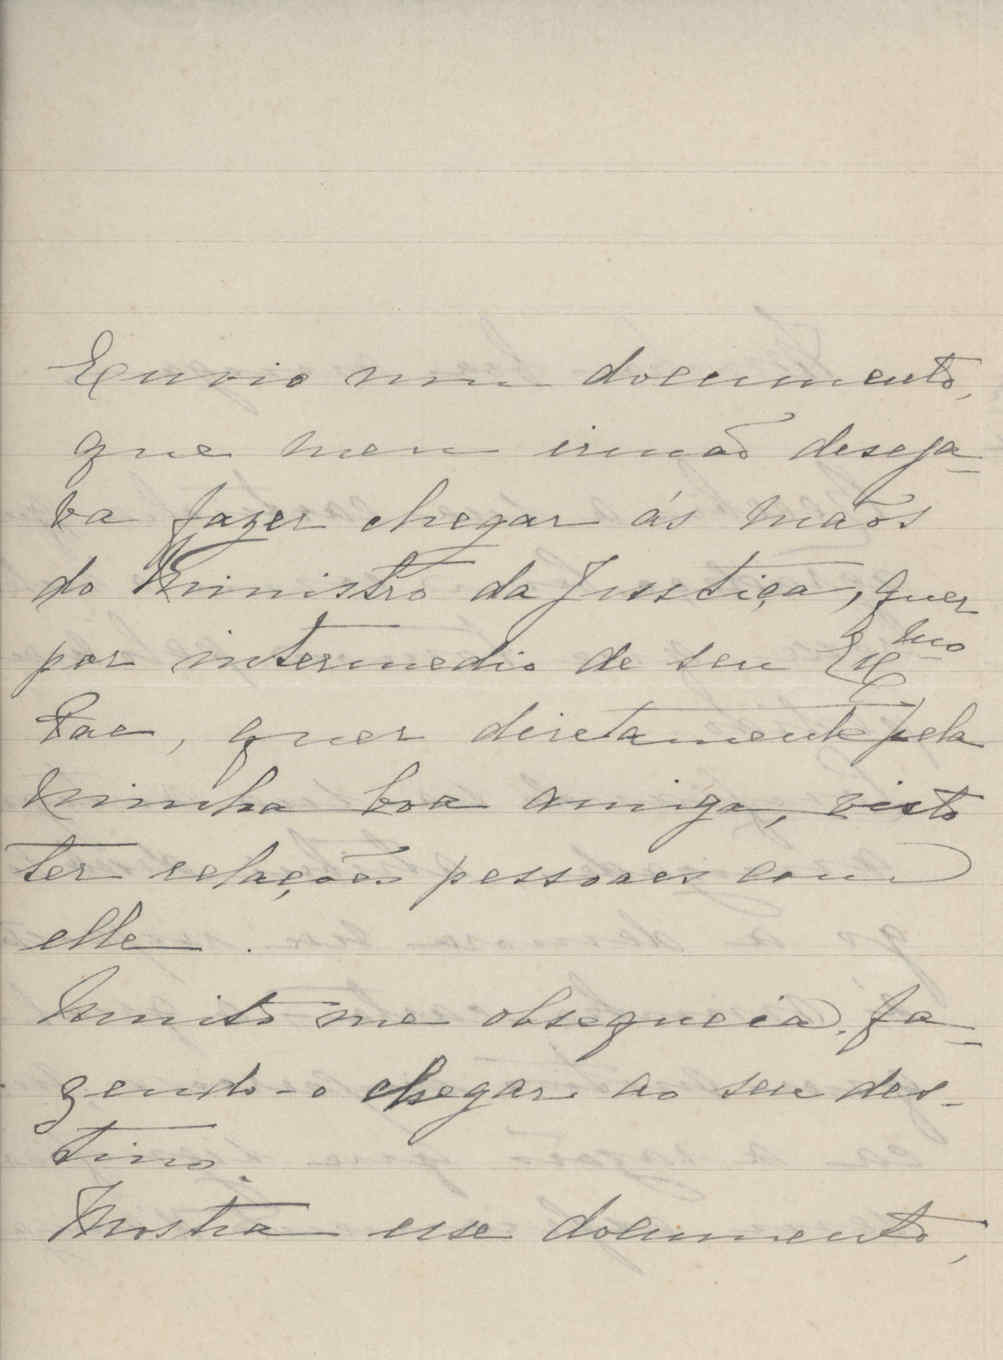 Envio um documento,
que meu irmão deseja-
va fazer chegar ás mãos
do Ministro da Justiça, quer
por intermedio de seu Exmo
Pae, quer diretamente pela
minha boa amiga, visto
ter relações pessoaes com
elle.
Muito me obsequeia, fa-
zendo-o chegar ao seu des-
tino.
Mostra esse documento,